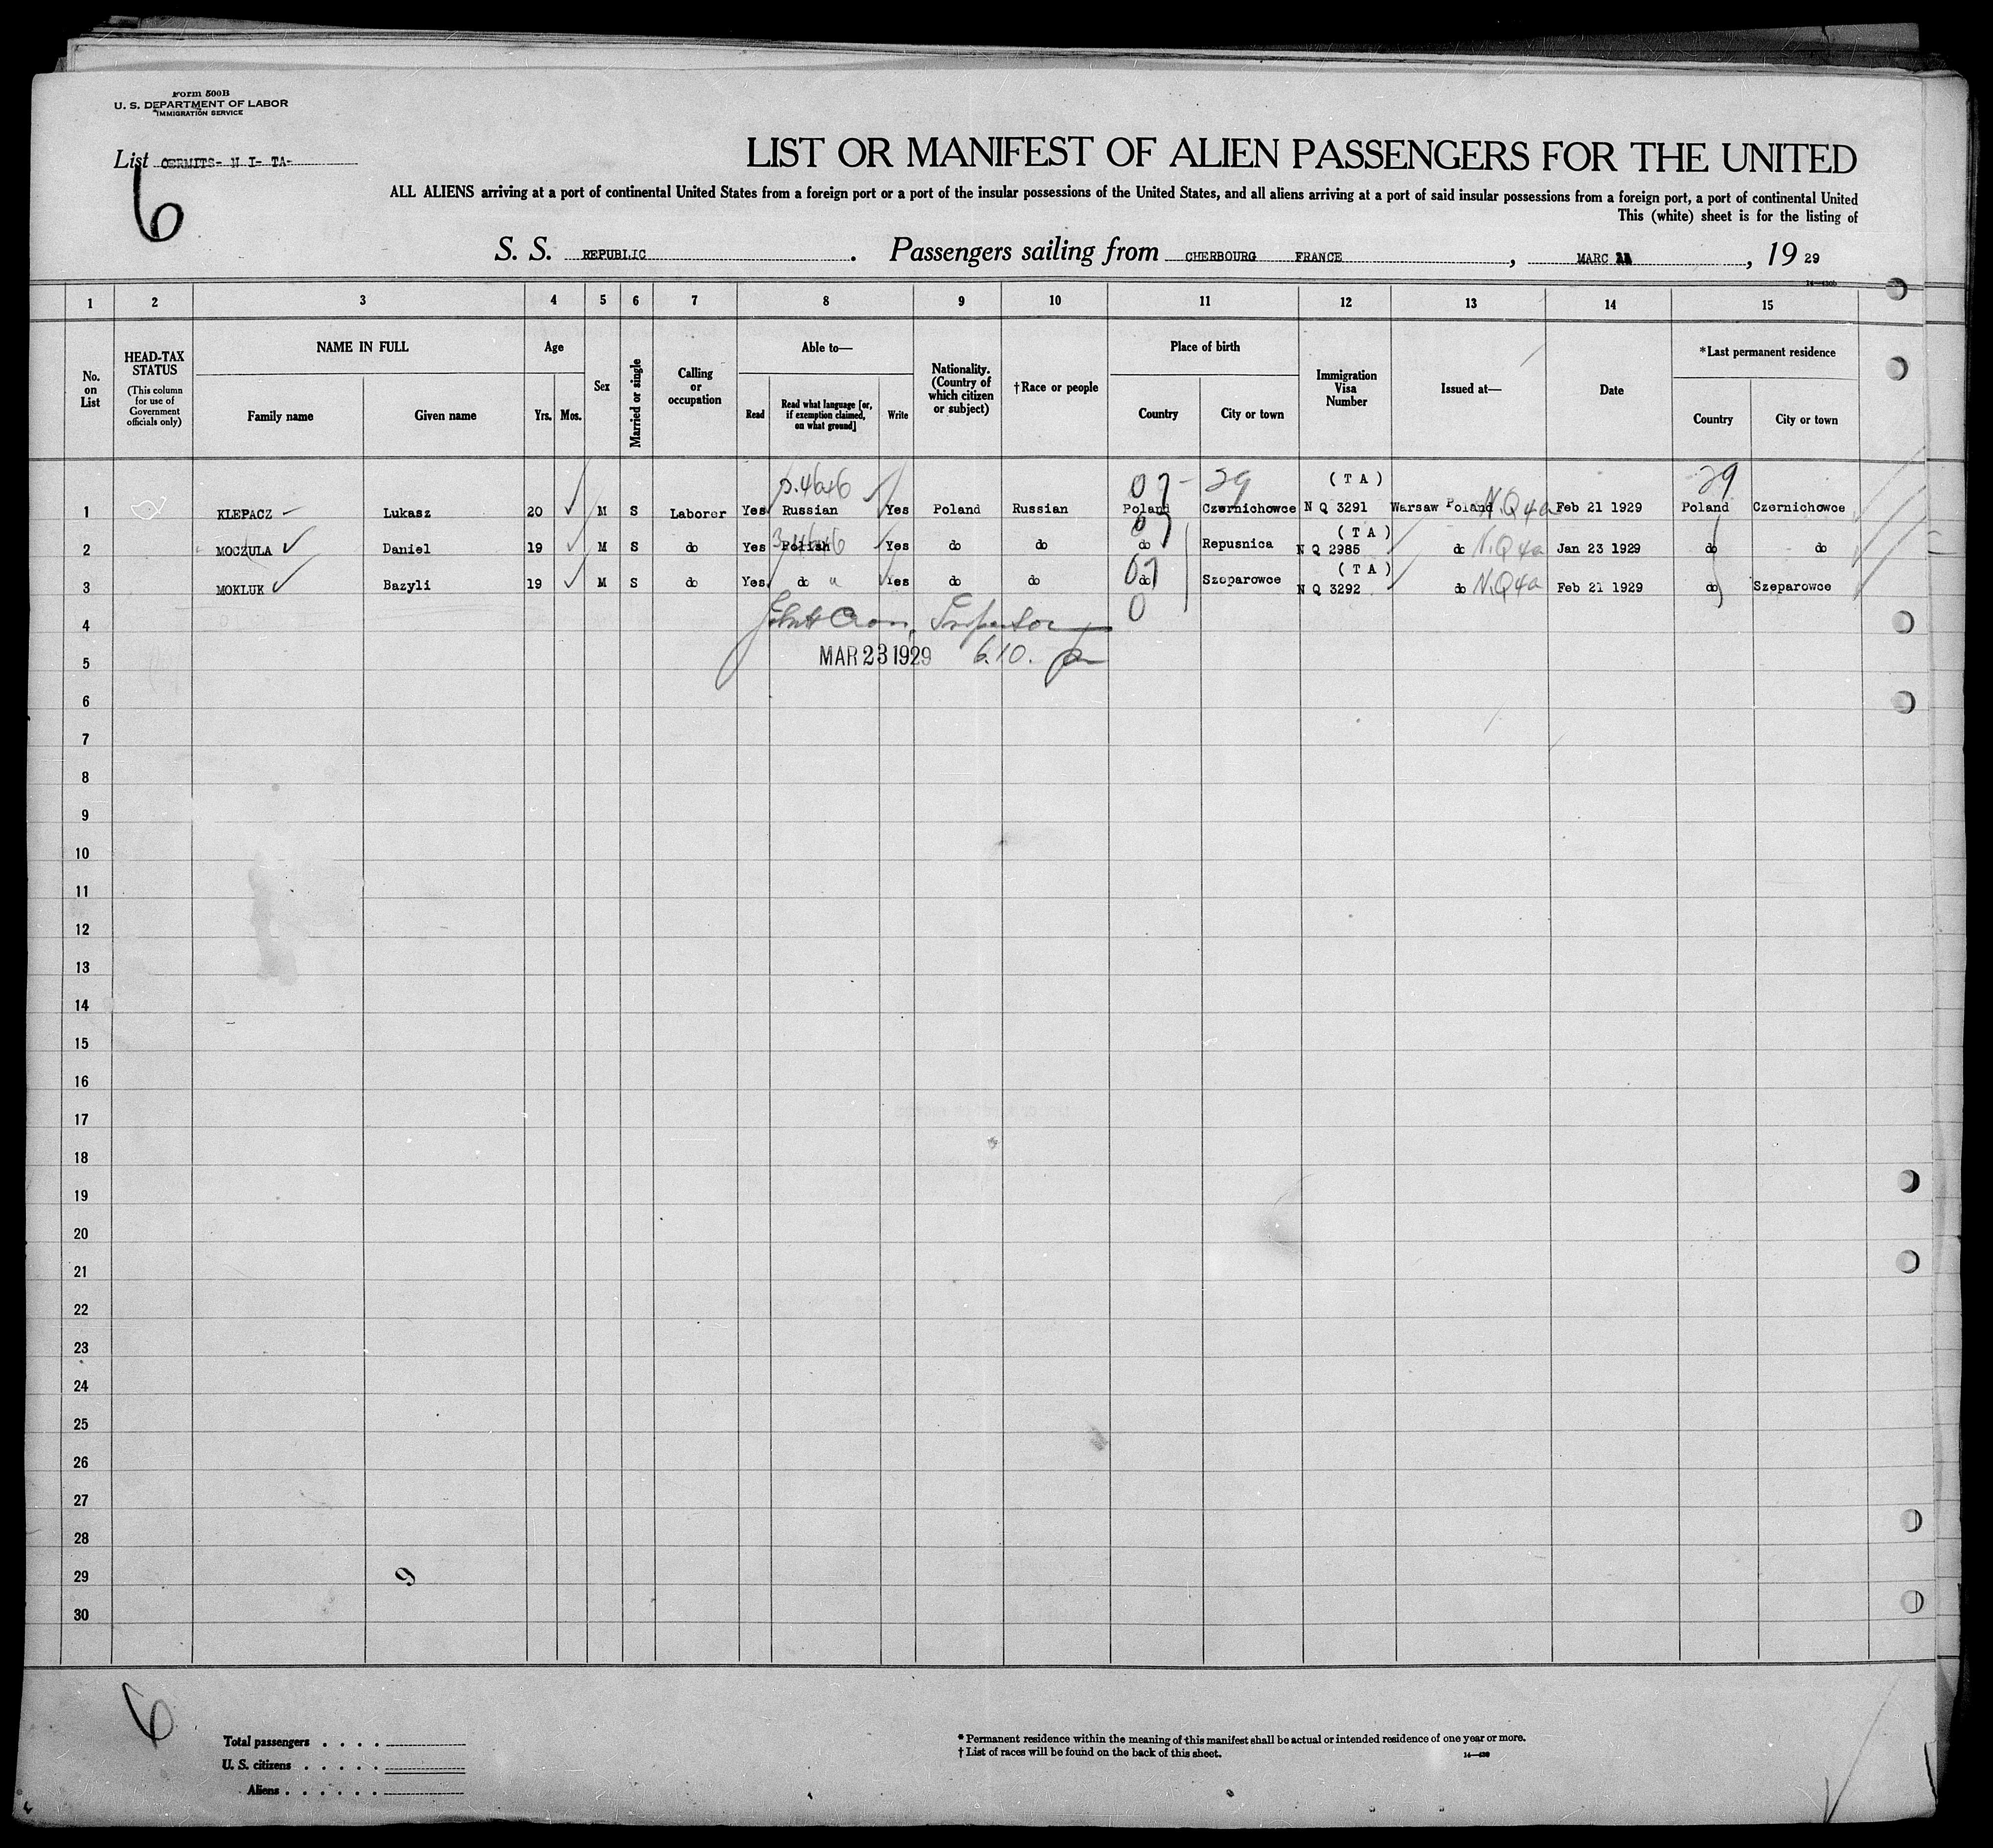 Form 500B
U. S. DEPARTMENT OF LABOR
IMMIGRATION SERVICE
List CERMITS- N I- TA-
6
LIST OR MANIFEST OF ALIEN PASSENGERS FOR THE UNITED
ALL ALIENS arriving at a port of continental United States from a foreign port or a port of the insular possessions of the United States, and all aliens arriving at a port of said insular possessions from a foreign port, a port of continental United
This (white) sheet is for the listing of
S. S. REPUBLIC . Passengers sailing from CHERBOURG FRANCE , MARC , 19 29
14—430b
1 2 3 4 5 6 7 8 9 10 11 12 13 14 15
No. on List
HEAD-TAX STATUS (This column for use of Government officials only)
NAME IN FULL
Family name Given name
Age
Yrs. Mos.
Sex
Married or single
Calling or occupation
Able to—
Read Read what language [or, if exemption claimed, on what ground] Write
Nationality. (Country of which citizen or subject)
†Race or people
Place of birth
Country City or town
Immigration Visa Number
Issued at—
Date
*Last permanent residence
Country City or town
07- 29 (T A) 29
1 KLEPACZ Lukasz 20 M S Laborer Yes Russian Yes Poland Russian Poland Czernichowce N Q 3291 Warsaw Poland N.Q4a Feb 21 1929 Poland Czernichowce
(T A)
2 MOCZULA Daniel 19 M S do Yes Polish Yes do do do Repusnica N Q 2985 do N.Q4a Jan 23 1929 do do
07 (T A)
3 MOKLUK Bazyli 19 M S do Yes do " Yes do do do Szoparowce N Q 3292 do N.Q4a Feb 21 1929 do Szeparowce
4 Inspector 0
5 MAR 23 1929 6.10.
6
7
8
9
10
11
12
13
14
15
16
17
18
19
20
21
22
23
24
25
26
27
28
29
30
6
Total passengers . . . .
U. S. citizens . . . . .
Aliens . . . . . .
* Permanent residence within the meaning of this manifest shall be actual or intended residence of one year or more.
† List of races will be found on the back of this sheet.
14—430